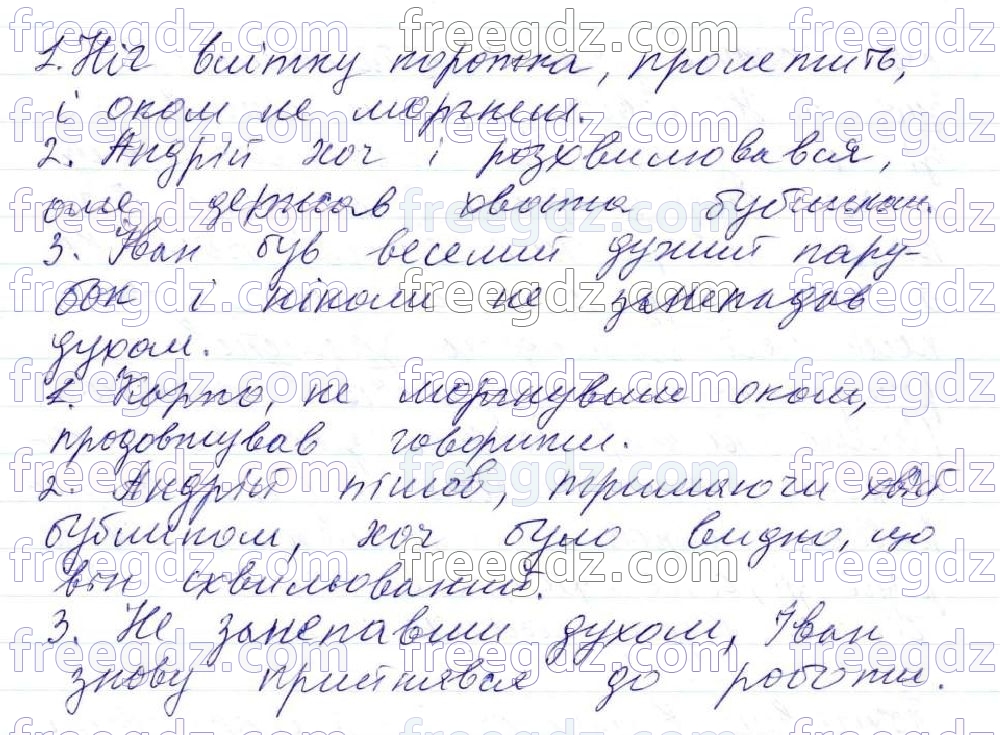 1. Ніч влітку коротка, пролетить,
і оком не моргнеш.
2. Андрій хоч і розхвилювався,
але держав хвоста бубликом.
3. Іван був веселий дужий пару-
бок і ніколи не занепадав
духом.
1. Каро, не моргнувши оком,
продовжував говорити.
2. Андрій пішов, тримаючи хвіст
бубликом, хоч було видно, що
він схвильований.
3. Не занепавши духом, Іван
знову прийнявся до роботи.